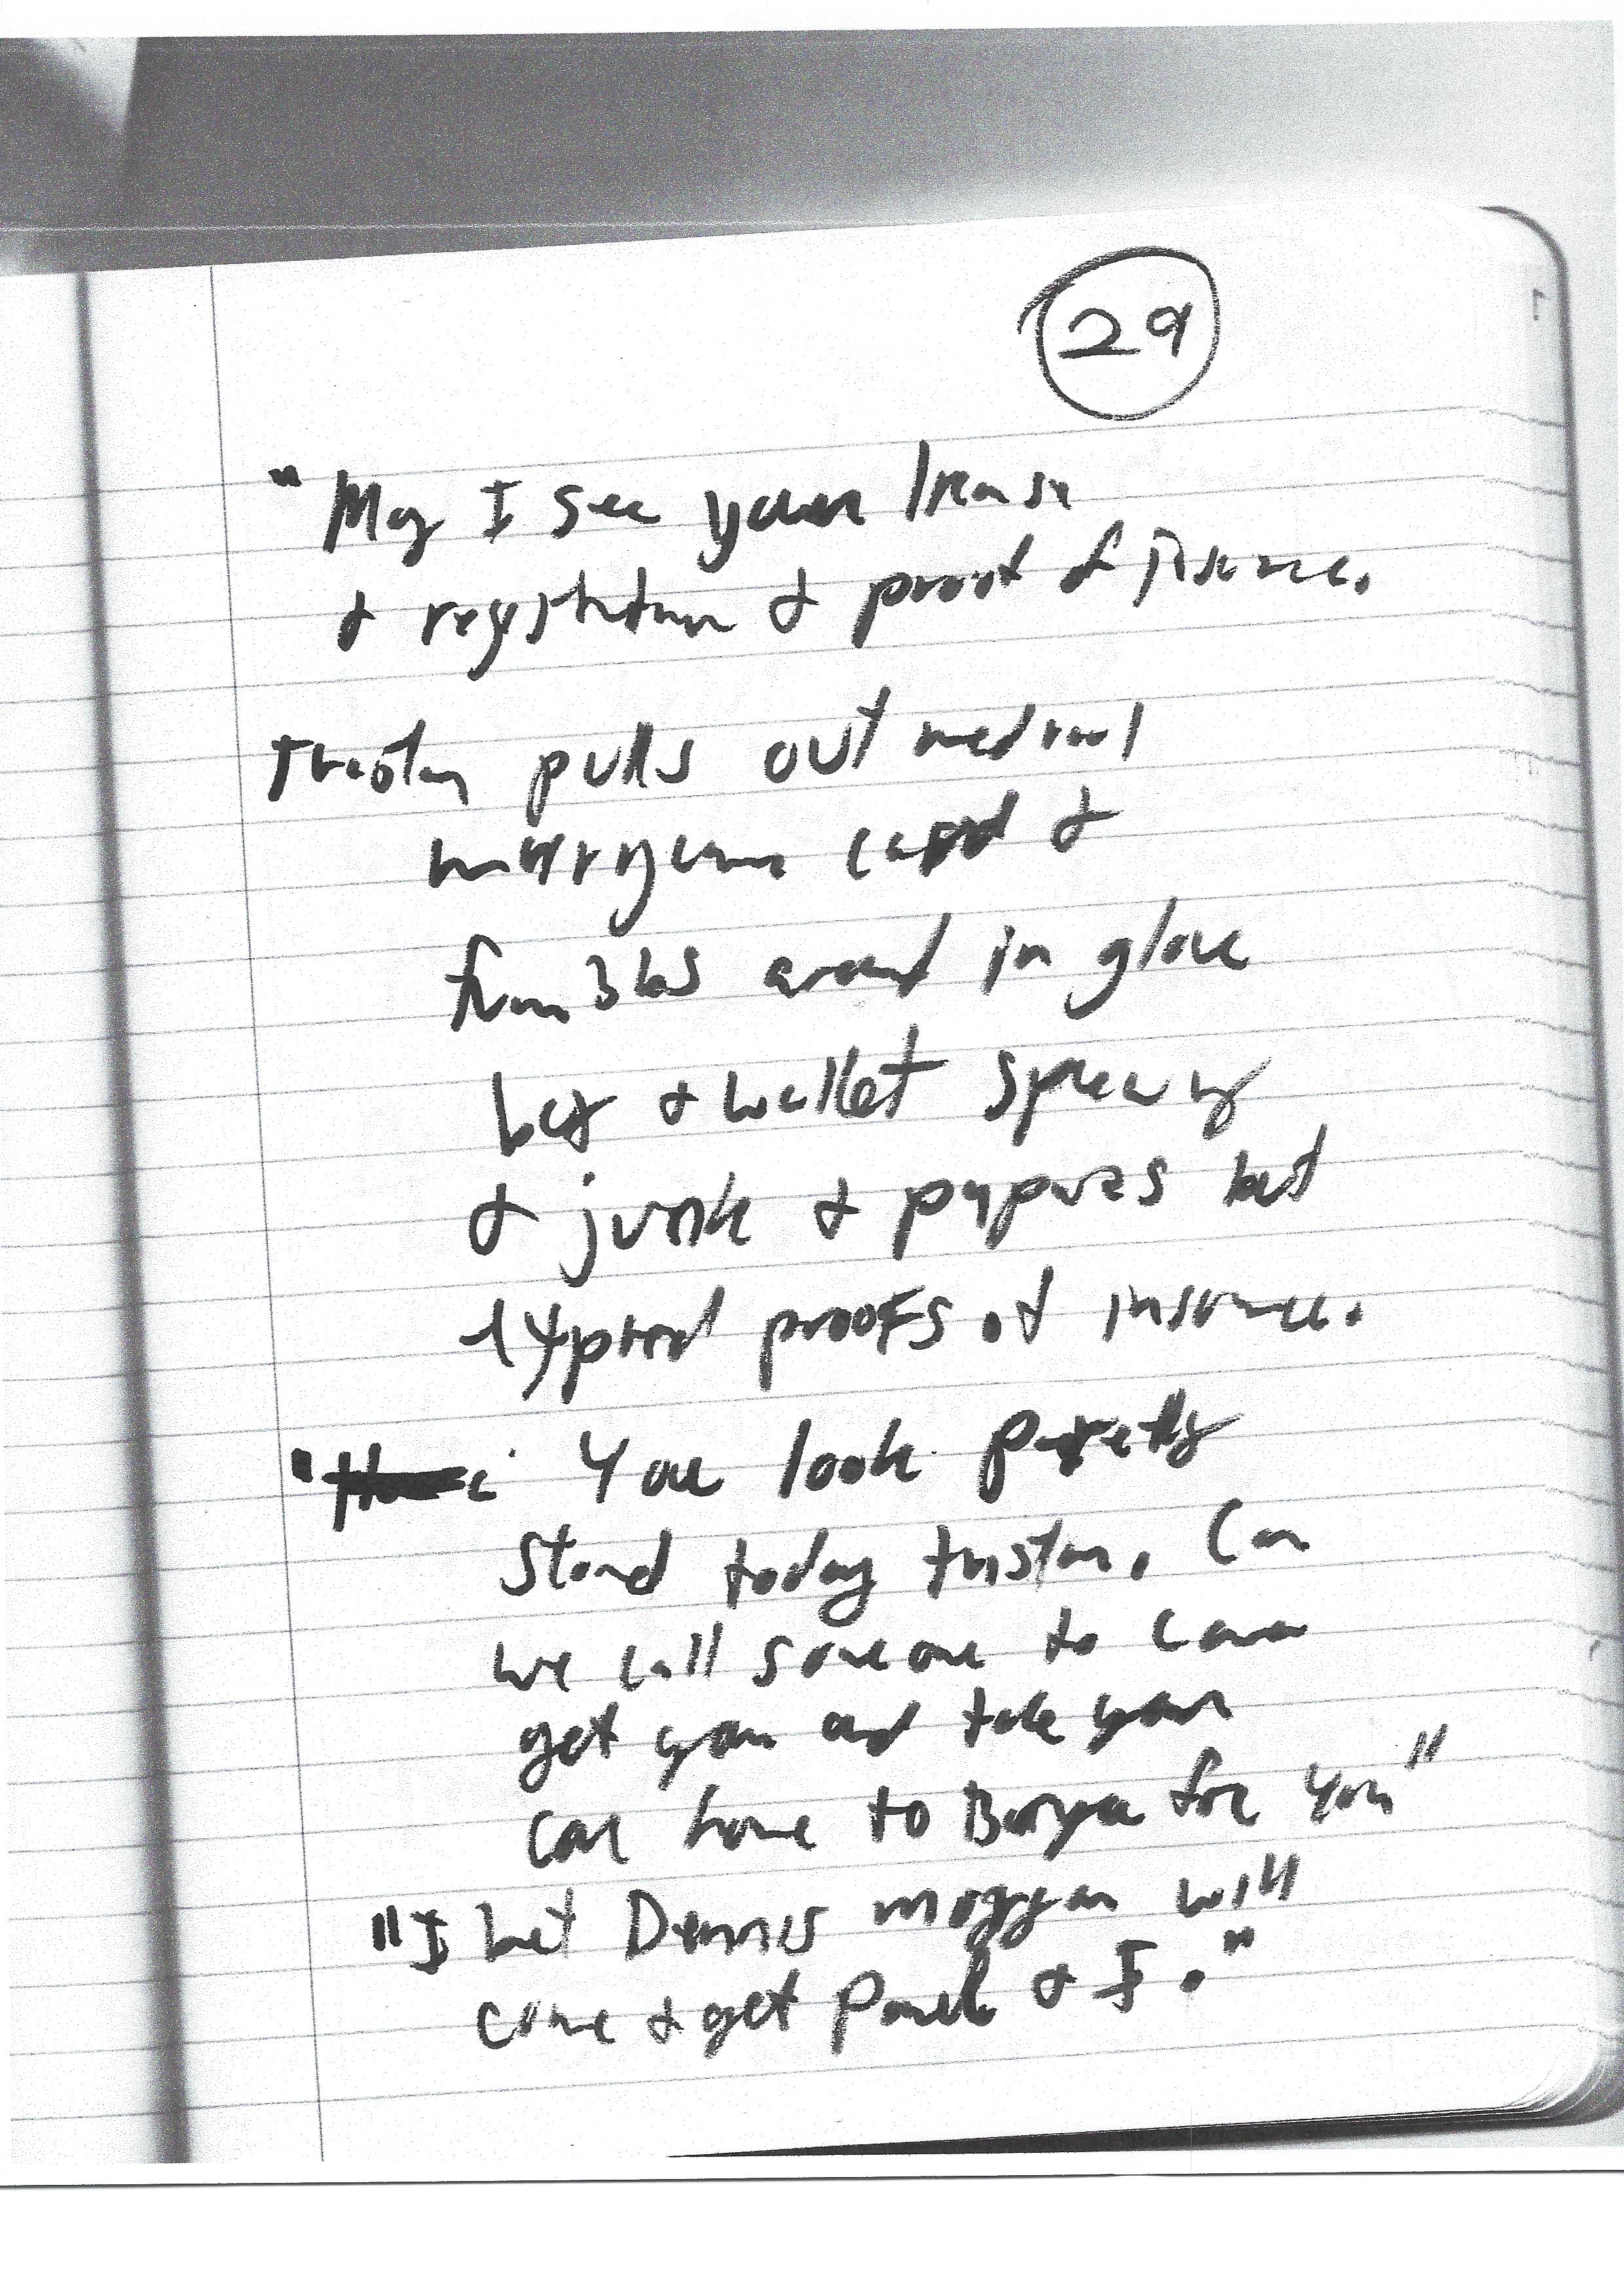 29
"May I see your license
& registration & proof of insurance.
Tristan pulls out medical
marijuana card &
fumbles around in glove
box & wallet spewing
& junk & papers but
expired proofs of insurance.
" You look pretty
stoned today tristan. Can
we call someone to come
get you and take your
car home to for you"
"I bet Dennis moggan will
come & get & I."